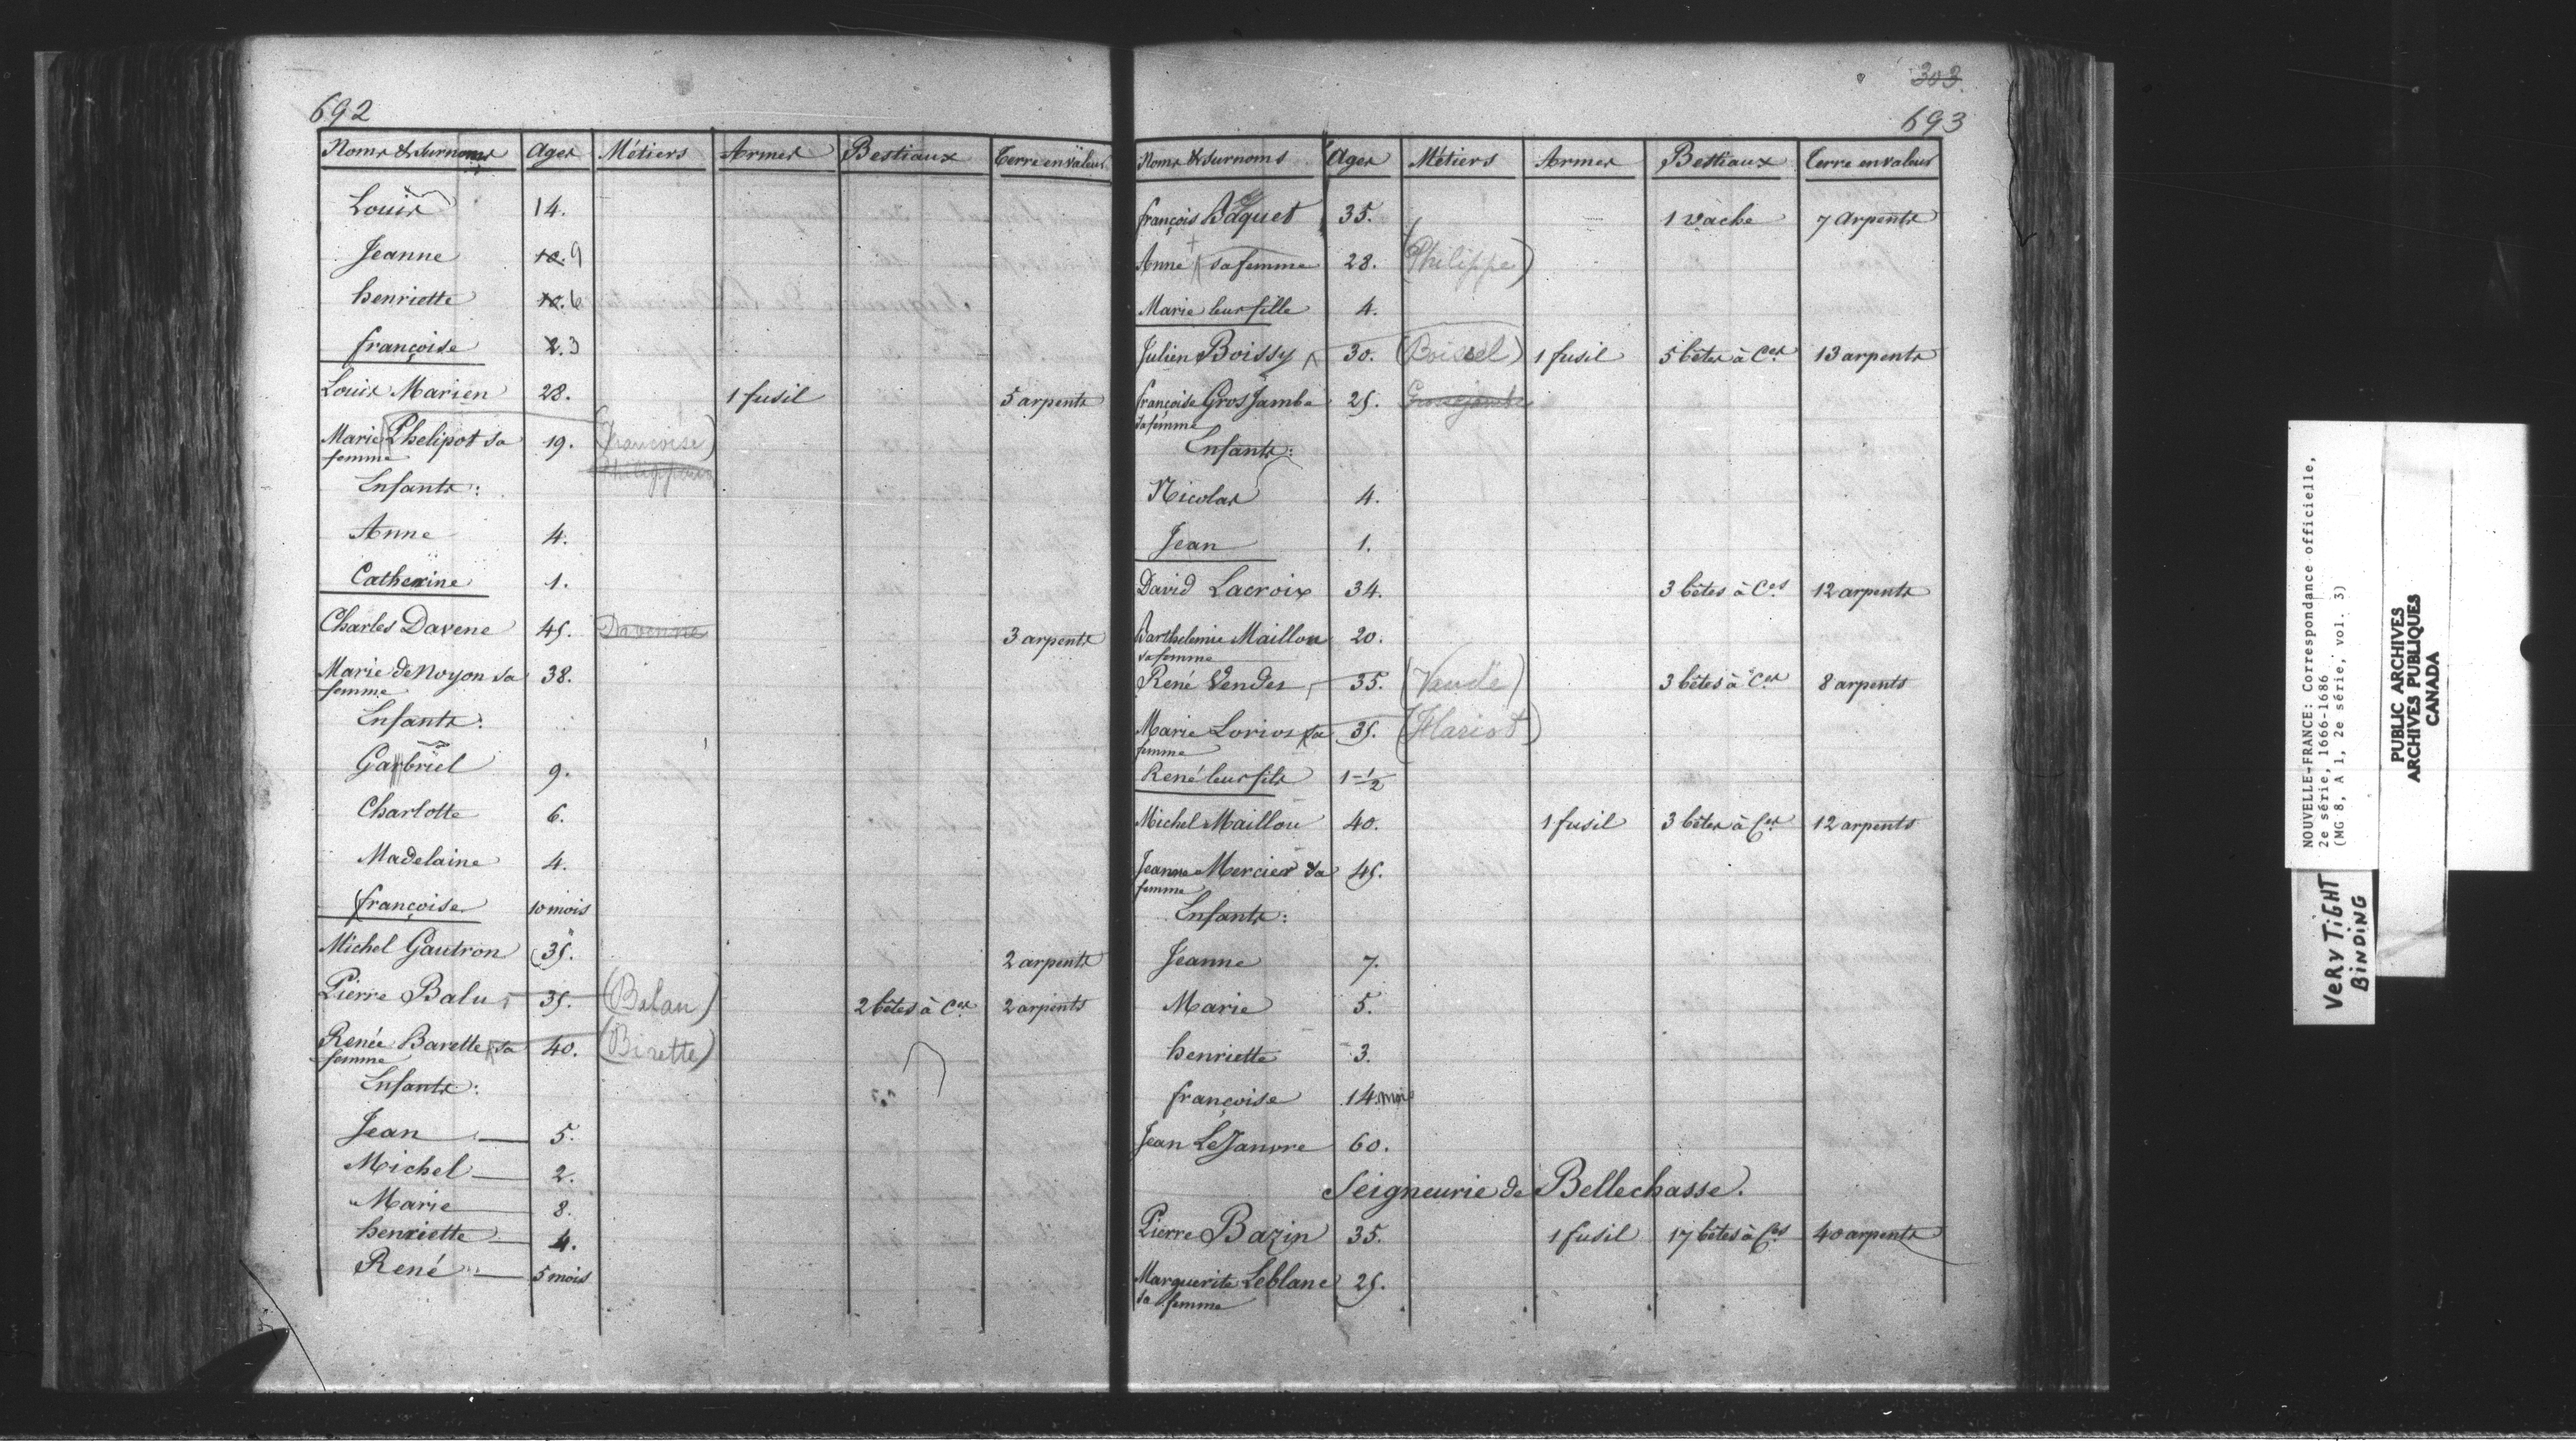 692
Noms & Surnoms Ages Métiers Armes Bestiaux Terre en valeur
Louis 14.
Jeanne 10. 9
henriette 10. 6
françoise 2. 3
Louis Marien 28. 1 fusil 5 arpents
Marie Phelipot sa 19. (Françoise)
femme
Enfants:
Anne 4.
Catherine 1.
Charles Davene 45. Davenne 3 arpents
Marie de Noyon sa 38.
femme
Enfants:
Garbriel 9.
Charlotte 6.
Madelaine 4.
françoise 10 mois
Michel Gautron 35. 2 arpents
Pierre Balu 35. (Balan) 2 bêtes à Ces 2 arpents
Renée Barette sa 40. (Birette)
femme
Enfants:
Jean 5.
Michel 2.
Marie 8.
henriette 4.
René 5 mois
303.
693
Noms & Surnoms Ages Métiers Armes Bestiaux Terre en valeur
françois Baquet 35. 1 vache 7 arpents
Anne sa femme 28. (Philippe)
Marie leur fille 4.
Julien Boissy 30. (Boissel) 1 fusil 5 bêtes à Ces 13 arpents
françoise Gros Jambe 25. Grossejambe
sa femme
Enfants:
Nicolas 4.
Jean 1.
David Lacroix 34. 3 bêtes à Ces 12 arpents
Barthelemie Maillou 20.
sa femme
René Vendes 35. (Vandé) 3 bêtes à Ces 8 arpents
Marie Lorios sa 35. (Hariot)
femme
René leur fils 1-1/2
Michel Maillou 40. 1 fusil 3 bêtes à Ces 12 arpents
Jeanne Mercier sa 45.
femme
Enfants:
Jeanne 7.
Marie 5.
henriette 3.
françoise 14 mois
Jean LeJanvre 60.
Seigneurie de Bellechasse.
Pierre Bazin 35. 1 fusil 17 bêtes à Ces 40 arpents
Marguerite Leblanc 25.
sa femme
NOUVELLE-FRANCE: Correspondance officielle,
2e série, 1666-1686
(MG 8, A 1, 2e série, vol. 3)
PUBLIC ARCHIVES
ARCHIVES PUBLIQUES
CANADA
VERY TIGHT
BINDING